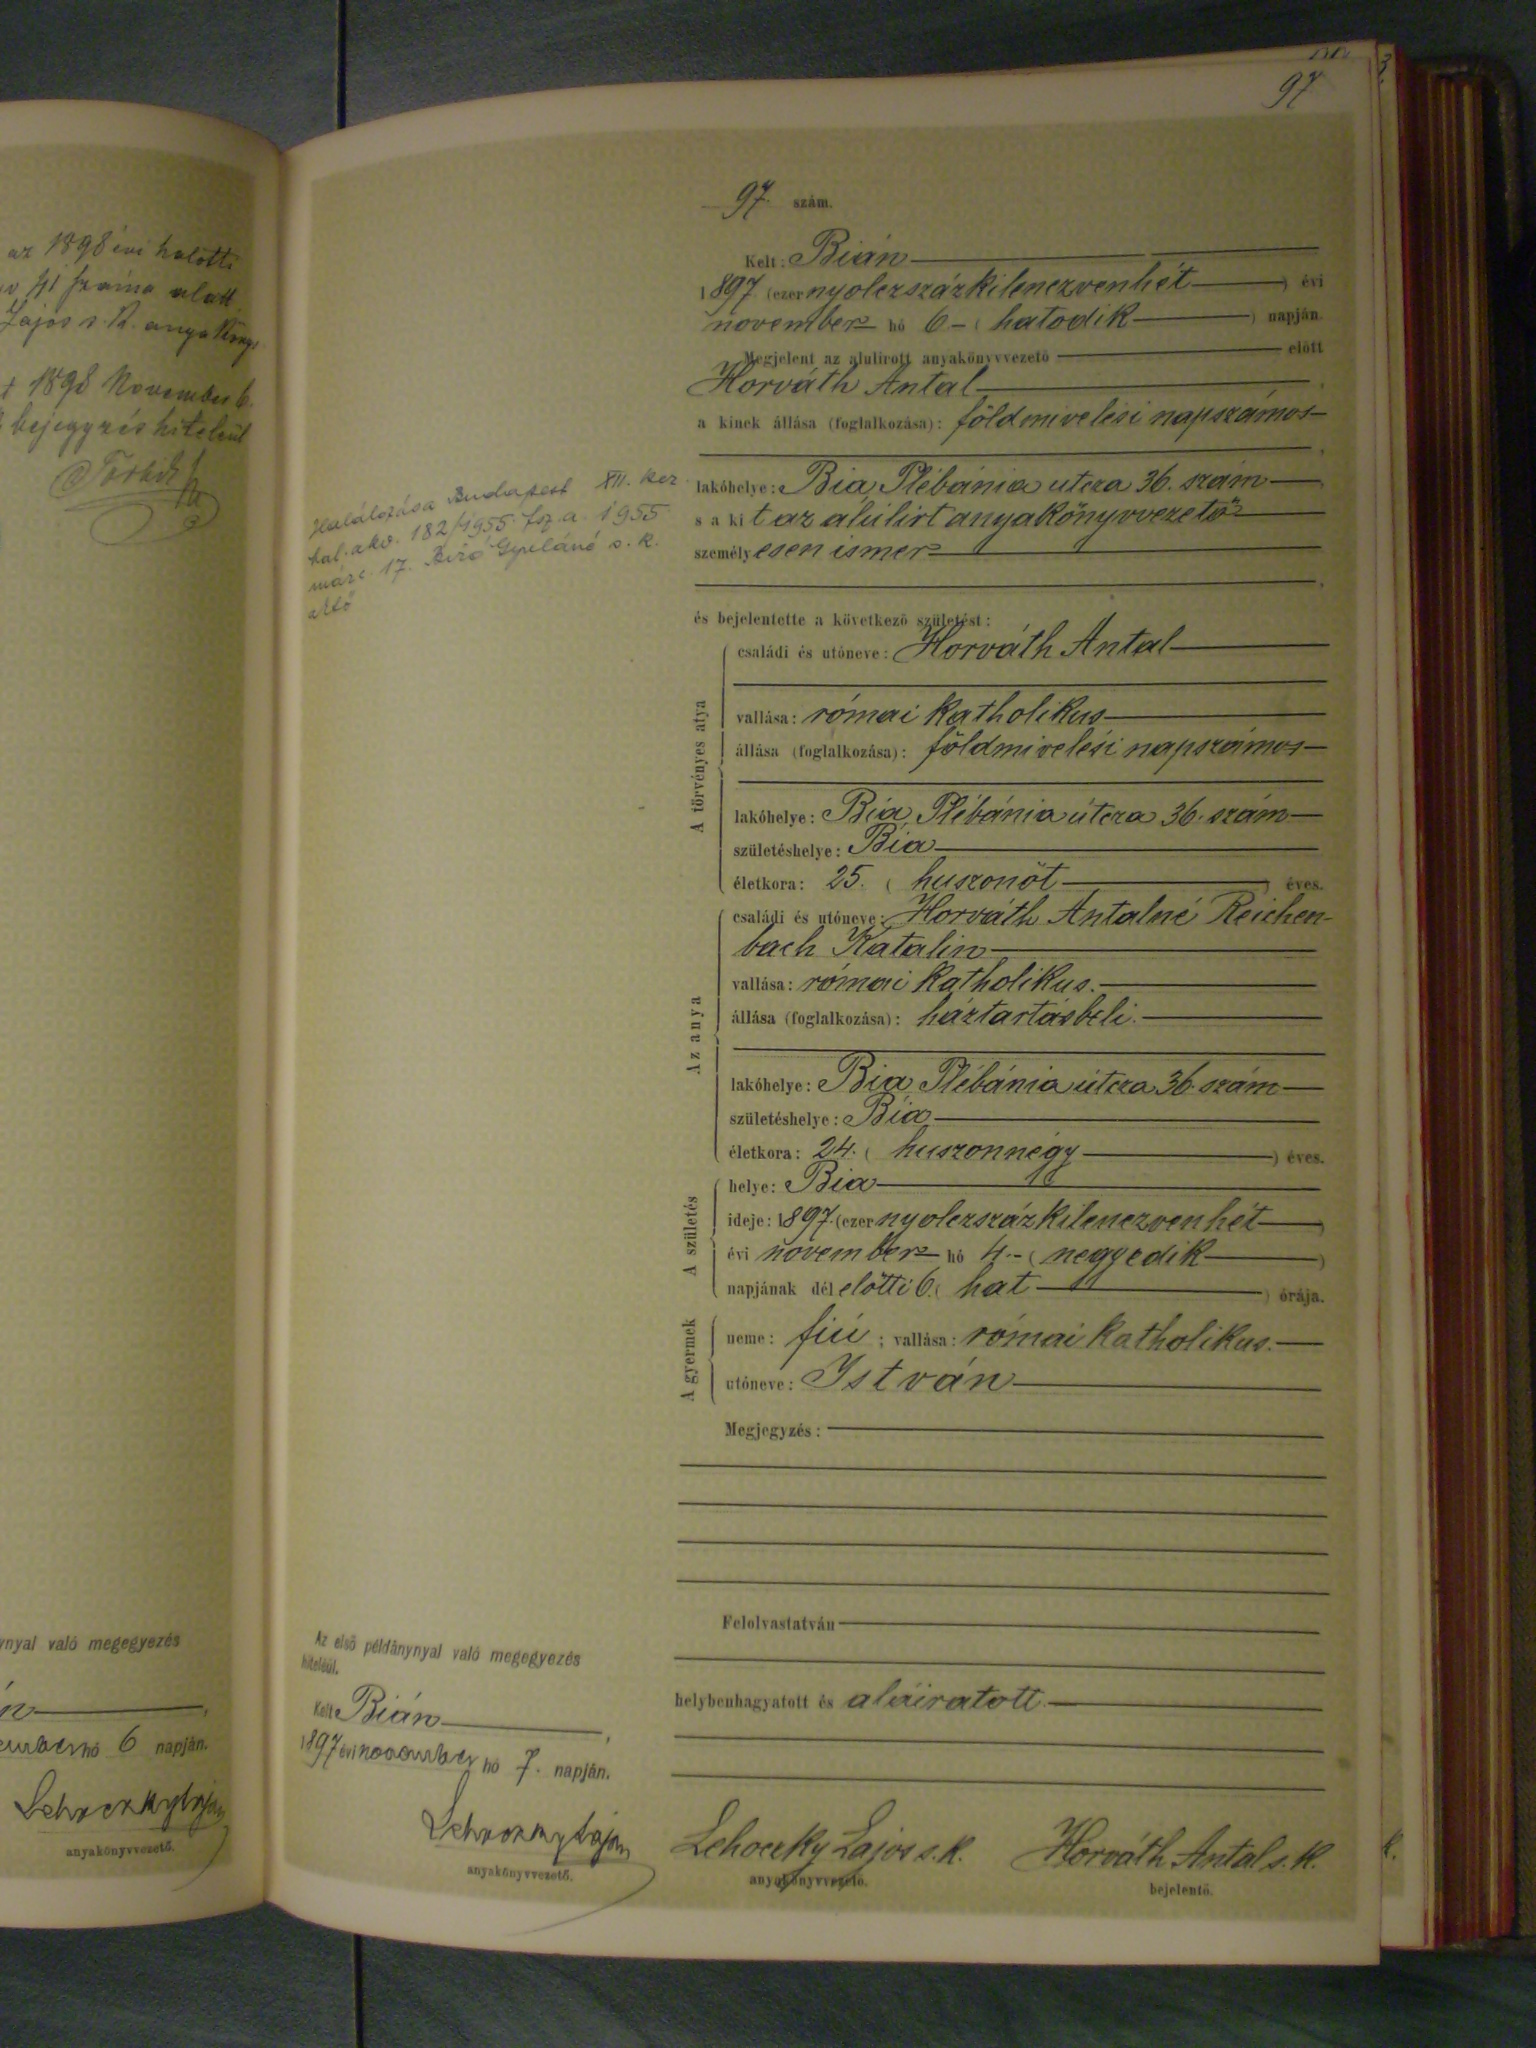 az 1898 évi halotti
41 száma alatt
Lajos s. k. anyakönyv
1898 November 6.
bejegyzés hiteléül
ynyal való megegyezés
hó 6 napján.
anyakönyvvezető.
97
97. szám.
Kelt: Bián
1897. (ezer nyolczszázkilenczvenhét) évi
november hó 6 - (hatodik) napján.
Megjelent az alulirott anyakönyvvezető előtt
Horváth Antal
a kinek állása (foglalkozása): földmivelési napszámos
lakóhelye: Bia, Plébánia utcza 36. szám
s a kit az alúlirt anyakönyvvezető
személyesen ismer
Halálozása Budapest XII. ker.
hal. akv. 182/1955 fsz. a. 1955
márc. 17. Biró Gyuláné s. k.
és bejelentette a következő születést:
A törvényes atya
családi és utóneve: Horváth Antal
vallása: római katholikus
állása (foglalkozása): földmivelési napszámos
lakóhelye: Bia, Plébánia útcza 36. szám
születéshelye: Bia
életkora: 25. (huszonöt) éves.
Az anya
családi és utóneve: Horváth Antalné Reichen-
bach Katalin
vallása: római katholikus.
állása (foglalkozása): háztartásbeli.
lakóhelye: Bia, Plébánia útcza 36. szám
születéshelye: Bia
életkora: 24. (huszonnégy) éves.
A születés
helye: Bia
ideje: 1897. (ezer nyolczszázkilenczvenhét)
évi november hó 4. - (negyedik)
napjának délelőtti 6. (hat) órája.
A gyermek
neme: fiú; vallása: római katholikus.
utóneve: István
Megjegyzés:
Felolvastatván
helybenhagyatott és aláiratott
Az első példánynyal való megegyezés
hiteléül.
Kelt Bián,
1897 évi november hó 7. napján.
Lehoczky Lajos
anyakönyvvezető.
Lehoczky Lajos s. k.
anyakönyvvezető.
Horváth Antal s. k.
bejelentő.